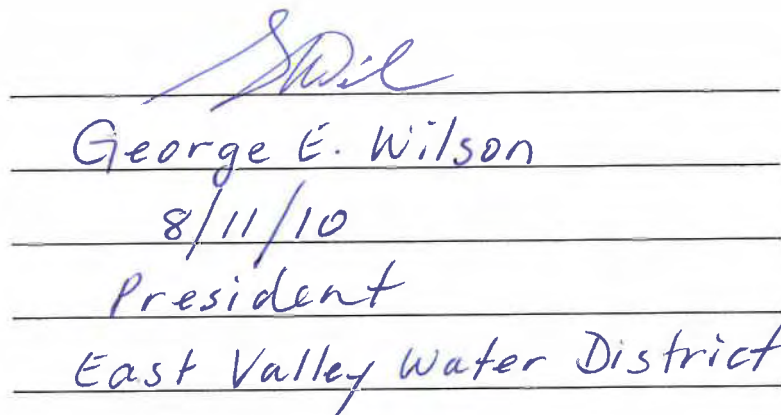 George E. Wilson
8/11/10
President
East Valley Water District